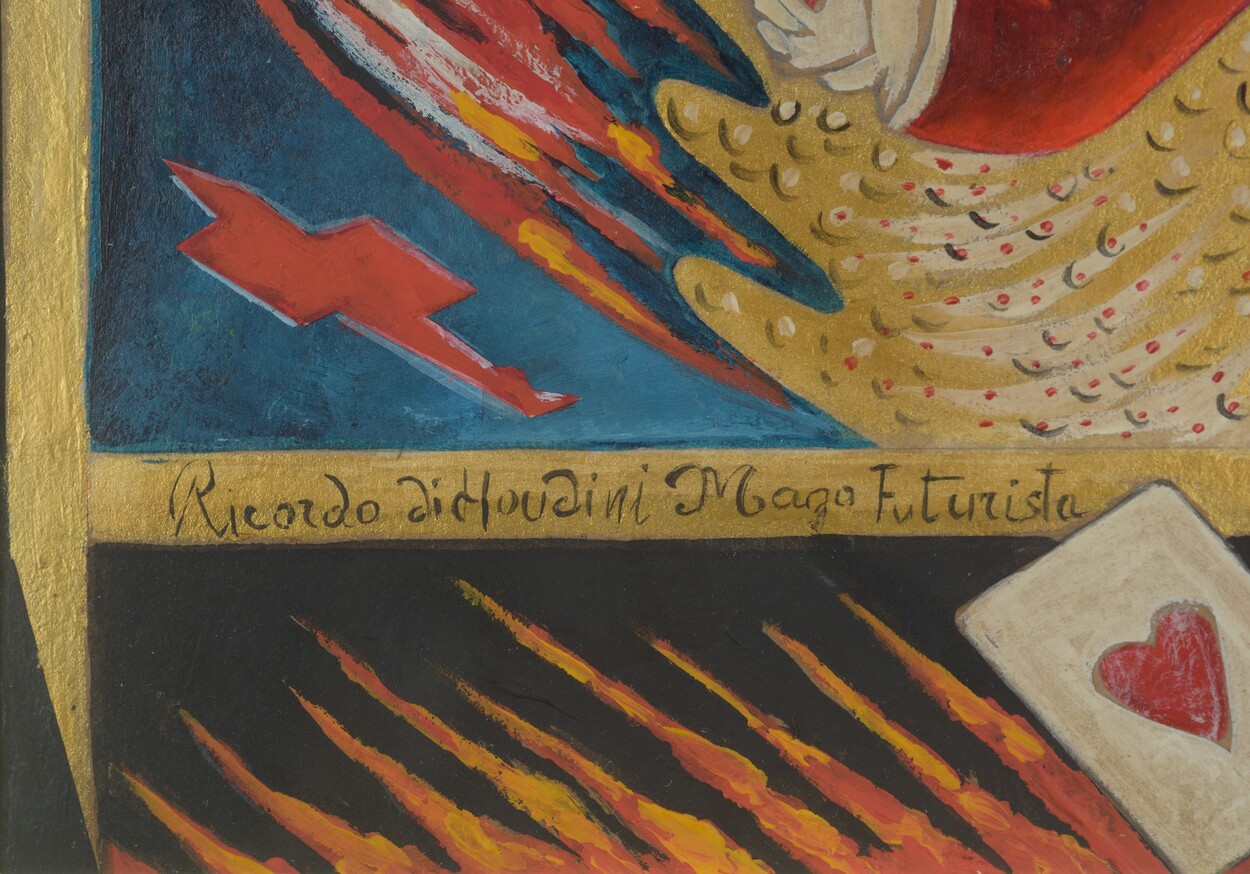 Ricordo di Houdini Mago Futurista